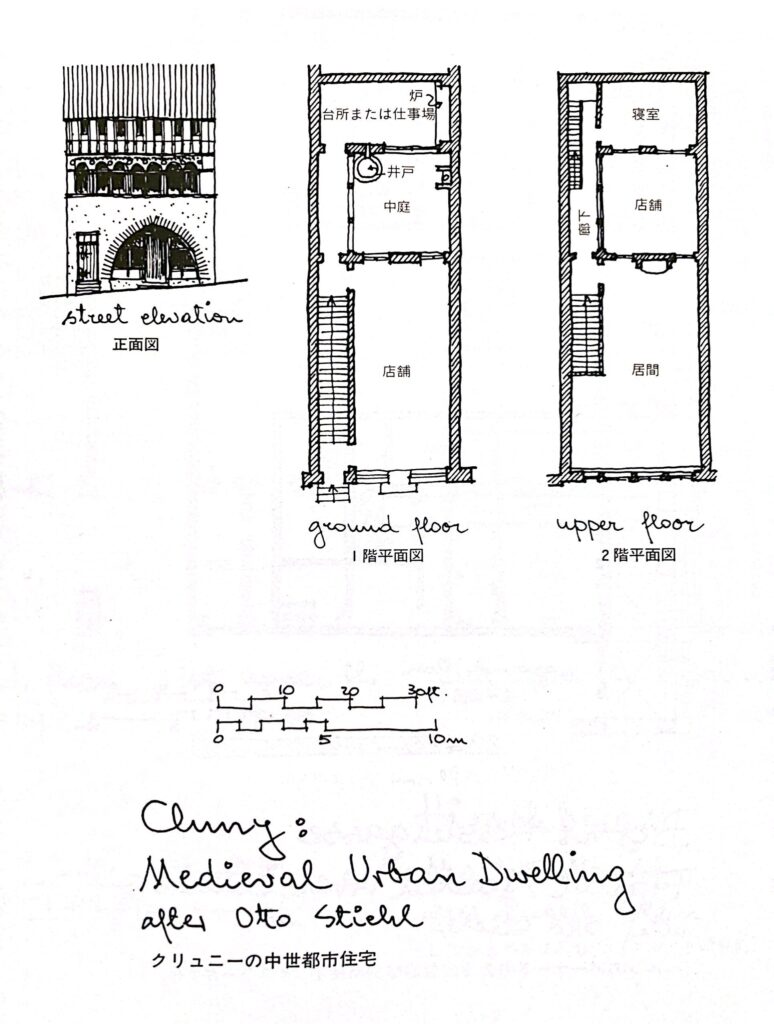 street elevation
正面図
炉
台所または仕事場
井戸
中庭
店舗
ground floor
1階平面図
寝室
店舗
廊下
居間
upper floor
2階平面図
0 10 20 30ft.
0 5 10m
Cluny:
Medieval Urban Dwelling
after Otto Stiehl
クリュニーの中世都市住宅